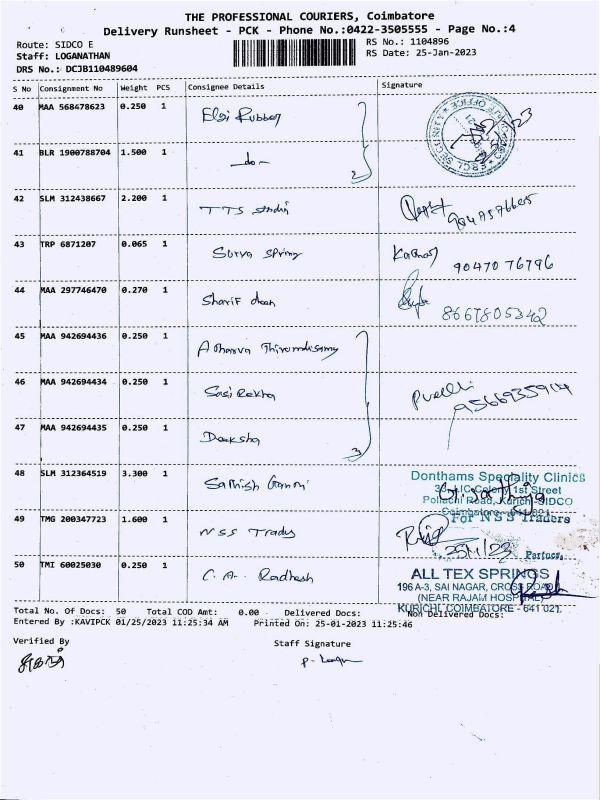 THE PROFESSIONAL COURIERS, Coimbatore
Delivery Runsheet - PCK - Phone No.:0422-3505555 - Page No.:4
Route: SIDCO E
RS No.: 1104896
Staff: LOGANATHAN
RS Date: 25-Jan-2023
DRS No.: DCJB110489604
S No Consignment No Weight PCS Consignee Details Signature
40 MAA 568478623 0.250 1 Elgi Rubber
41 BLR 1900788704 1.500 1 -do- 2
42 SLM 312438667 2.200 1 TTS
43 TRP 6871207 0.065 1 Surya Spring 90470 76796
44 MAA 297746470 0.270 1 Sharif deen 8667805342
45 MAA 942694436 0.250 1 Atharva
46 MAA 942694434 0.250 1 Sasi Rekha 9566935914
47 MAA 942694435 0.250 1 Deeksha 3
48 SLM 312364519 3.300 1 Sathish
Donthams Speciality Clinics
1st Street
Pollachi Road, Kurichi-SIDCO
Coimbatore - 641 021.
49 TMG 200347723 1.600 1 NSS Traders
For N S S Traders
25/1/23 Partner.
50 TMI 60025030 0.250 1 C.A.
ALL TEX SPRINGS
196 A-3, SAI NAGAR, CROSS ROAD
(NEAR RAJAM HOSPITAL)
KURICHI, COIMBATORE - 641 021.
Total No. Of Docs: 50 Total COD Amt: 0.00 Delivered Docs: Non Delivered Docs:
Entered By :KAVIPCK 01/25/2023 11:25:34 AM Printed On: 25-01-2023 11:25:46
Verified By
Staff Signature